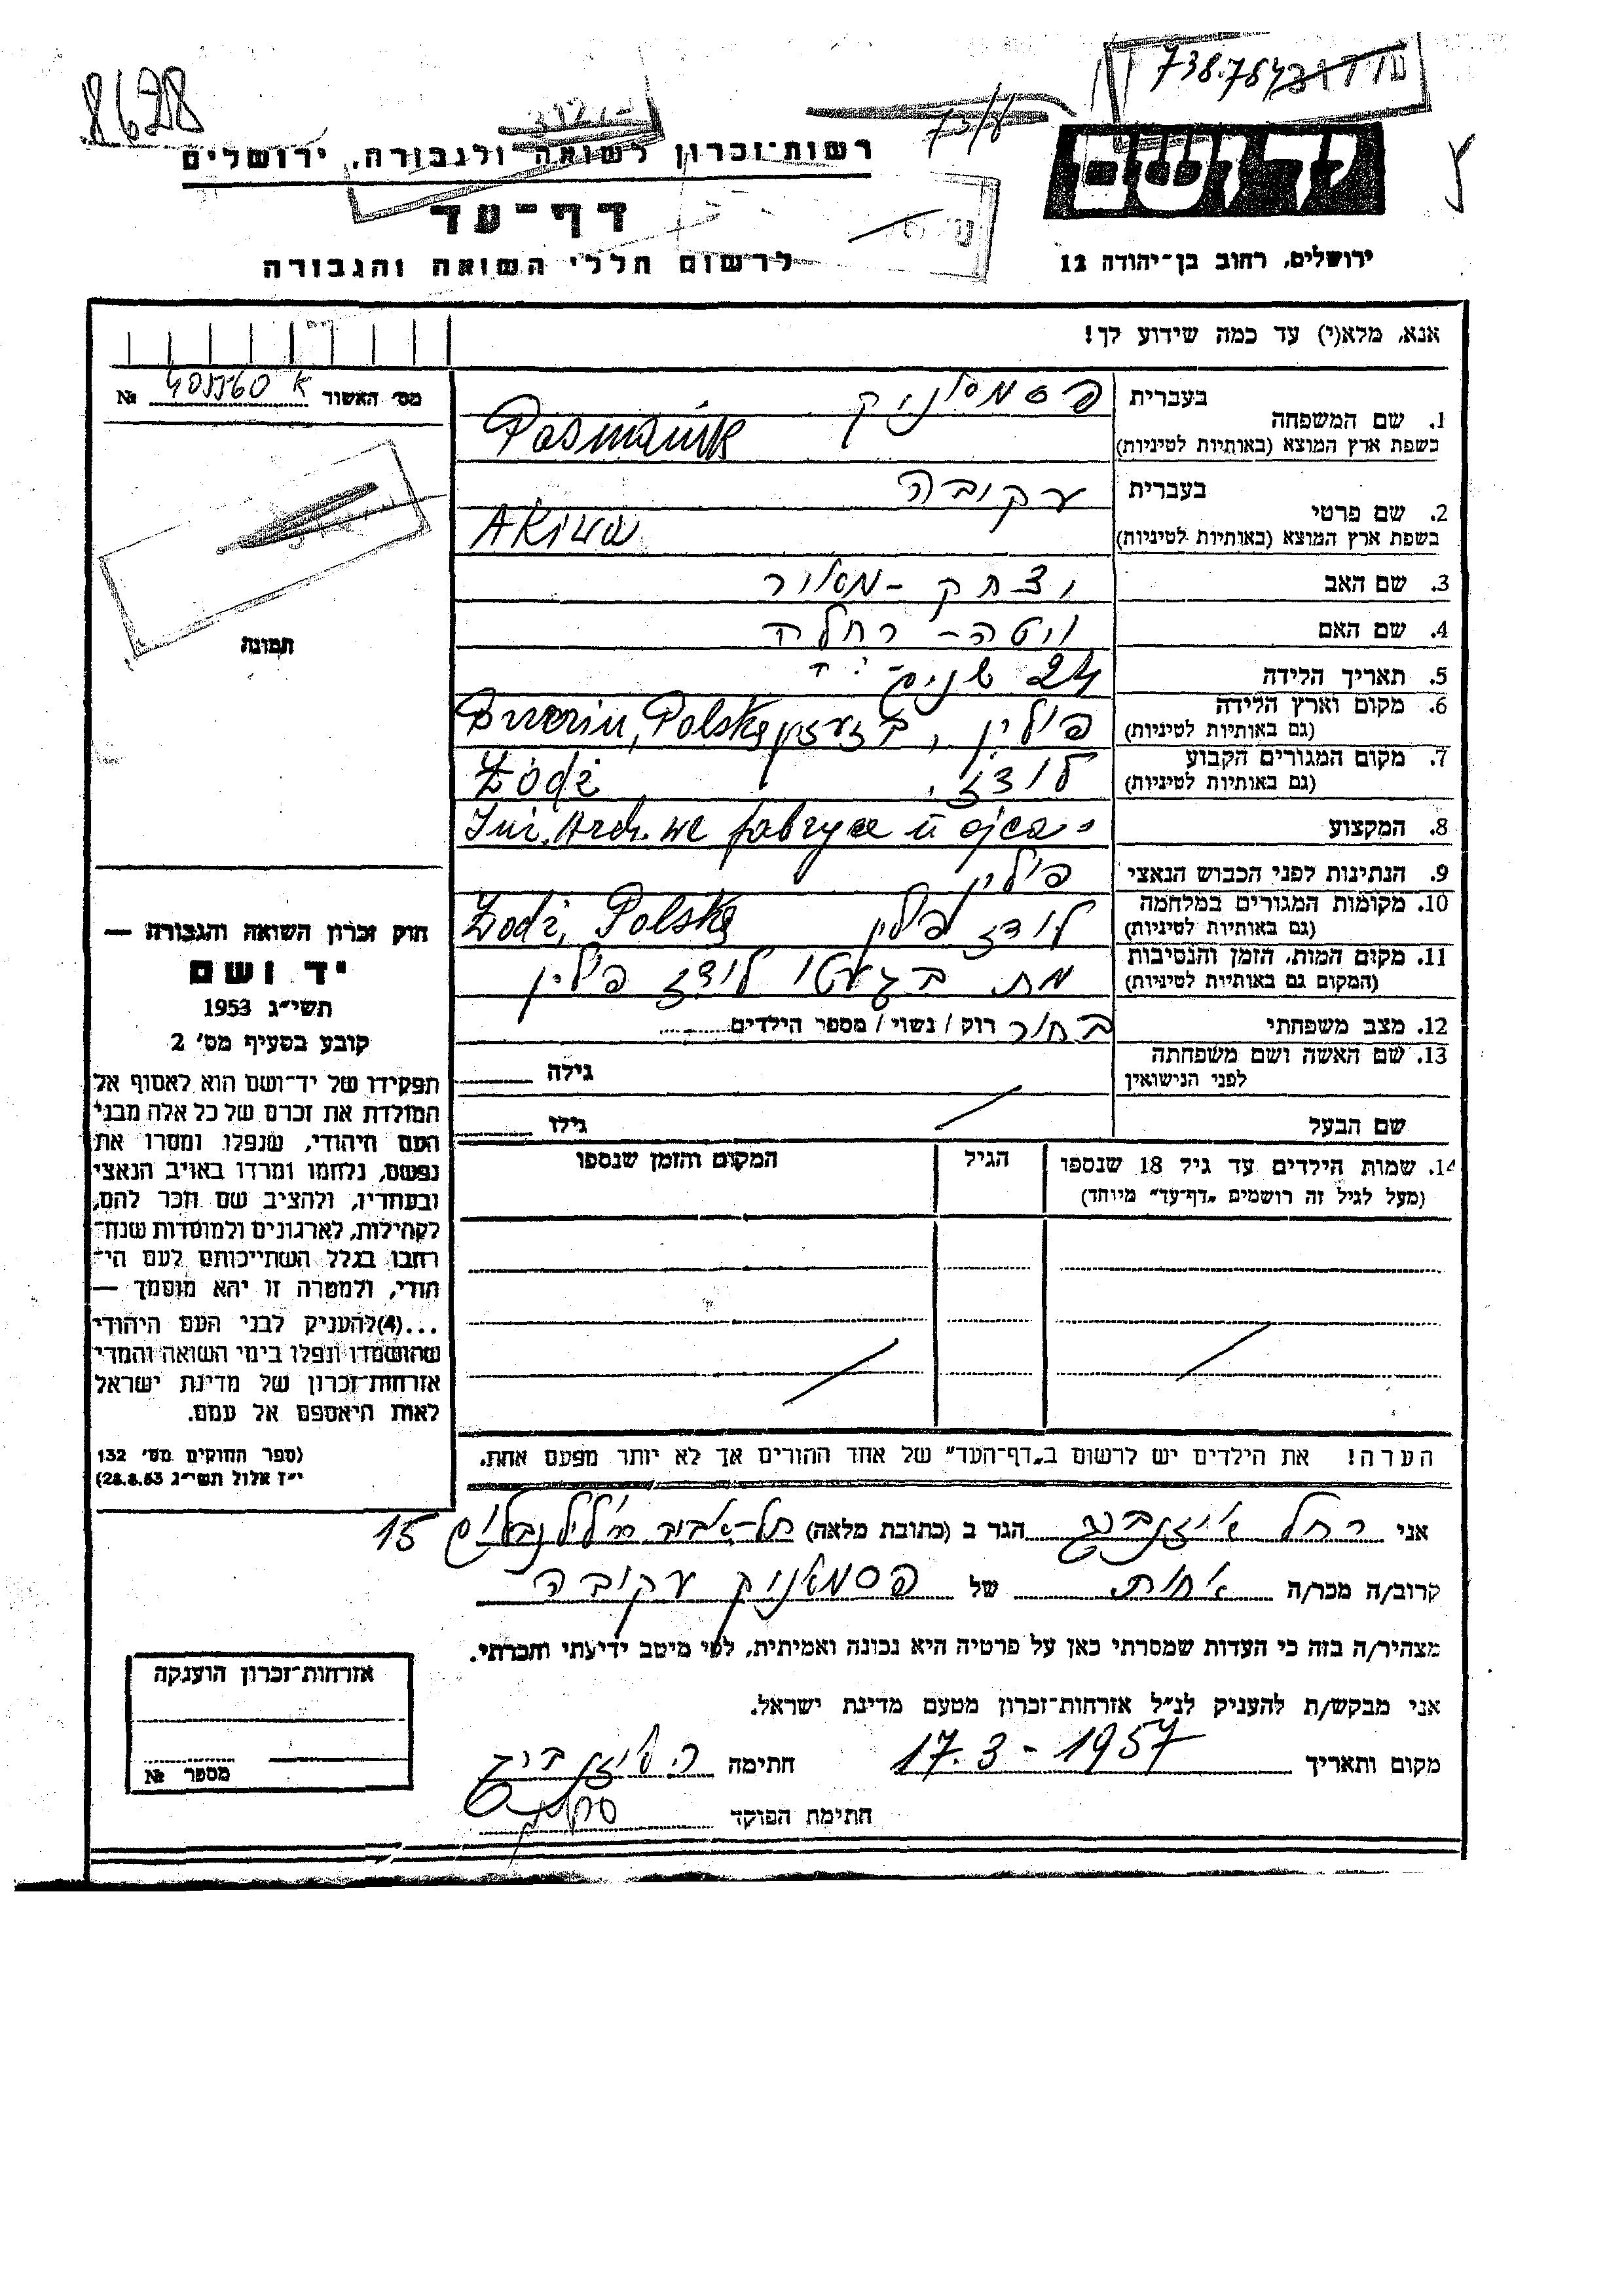 8628
738.784
73/8
רשות־זכרון לשואה ולגבורה, ירושלים
יד ושם
דף־עד
לרשום חללי השואה והגבורה
ירושלים, רחוב בן־יהודה 12
אנא, מלא(י) עד כמה שידוע לך!
מס׳ האשור № 405560 א
תמונה
1. שם המשפחה
בעברית פסמניק
בשפת ארץ המוצא (באותיות לטיניות) Pasmanik
2. שם פרטי
בעברית עקיבה
בשפת ארץ המוצא (באותיות לטיניות) Akiwa
3. שם האב יצחק - מאיר
4. שם האם ויטה - רחל
5. תאריך הלידה 24 שנים
6. מקום וארץ הלידה פולין, בזעזין Brzezin, Polska
(גם באותיות לטיניות)
7. מקום המגורים הקבוע לודז, Łódź
(גם באותיות לטיניות)
8. המקצוע we fabryce u ojca
9. הנתינות לפני הכבוש הנאצי פולין
10. מקומות המגורים במלחמה לודז פולין Łodź, Polska
(גם באותיות לטיניות)
11. מקום המות, הזמן והנסיבות מת בגעטו לודז פולין
(המקום גם באותיות לטיניות)
12. מצב משפחתי בחור רוק / נשוי / מספר הילדים
13. שם האשה ושם משפחתה גילה
לפני הנישואין
שם הבעל גילו
14. שמות הילדים עד גיל 18 שנספו הגיל המקום והזמן שנספו
(מעל לגיל זה רושמים „דף־עד” מיוחד)
חוק זכרון השואה והגבורה —
יד ושם
תשי״ג 1953
קובע בסעיף מס׳ 2
תפקידו של יד־ושם הוא לאסוף אל
המולדת את זכרם של כל אלה מבני
העם היהודי, שנפלו ומסרו את
נפשם, נלחמו ומרדו באויב הנאצי
ובעוזריו, ולהציב שם וזכר להם,
לקהילות, לארגונים ולמוסדות שנח־
רבו בגלל השתייכותם לעם הי־
הודי, ולמטרה זו יהא מוסמך —
...(4)להעניק לבני העם היהודי
שהושמדו ונפלו בימי השואה והמרי
אזרחות־זכרון של מדינת ישראל
לאות היאספם אל עמם.
(ספר החוקים מס׳ 132
י״ז אלול תשי״ג 28.8.53)
הערה! את הילדים יש לרשום ב„דף־העד” של אחד ההורים אך לא יותר מפעם אחת.
אני רחל אייזנברג הגר ב (כתובת מלאה) תל-אביב 15
קרוב/ה מכר/ה אחות של פסמאניק עקיבה
מצהיר/ה בזה כי העדות שמסרתי כאן על פרטיה היא נכונה ואמיתית, לפי מיטב ידיעתי והכרתי.
אני מבקש/ת להעניק לנ״ל אזרחות־זכרון מטעם מדינת ישראל.
מקום ותאריך 17.3-1957 חתימה ר. אייזנברג
חתימת הפוקד
אזרחות־זכרון הוענקה
מספר №